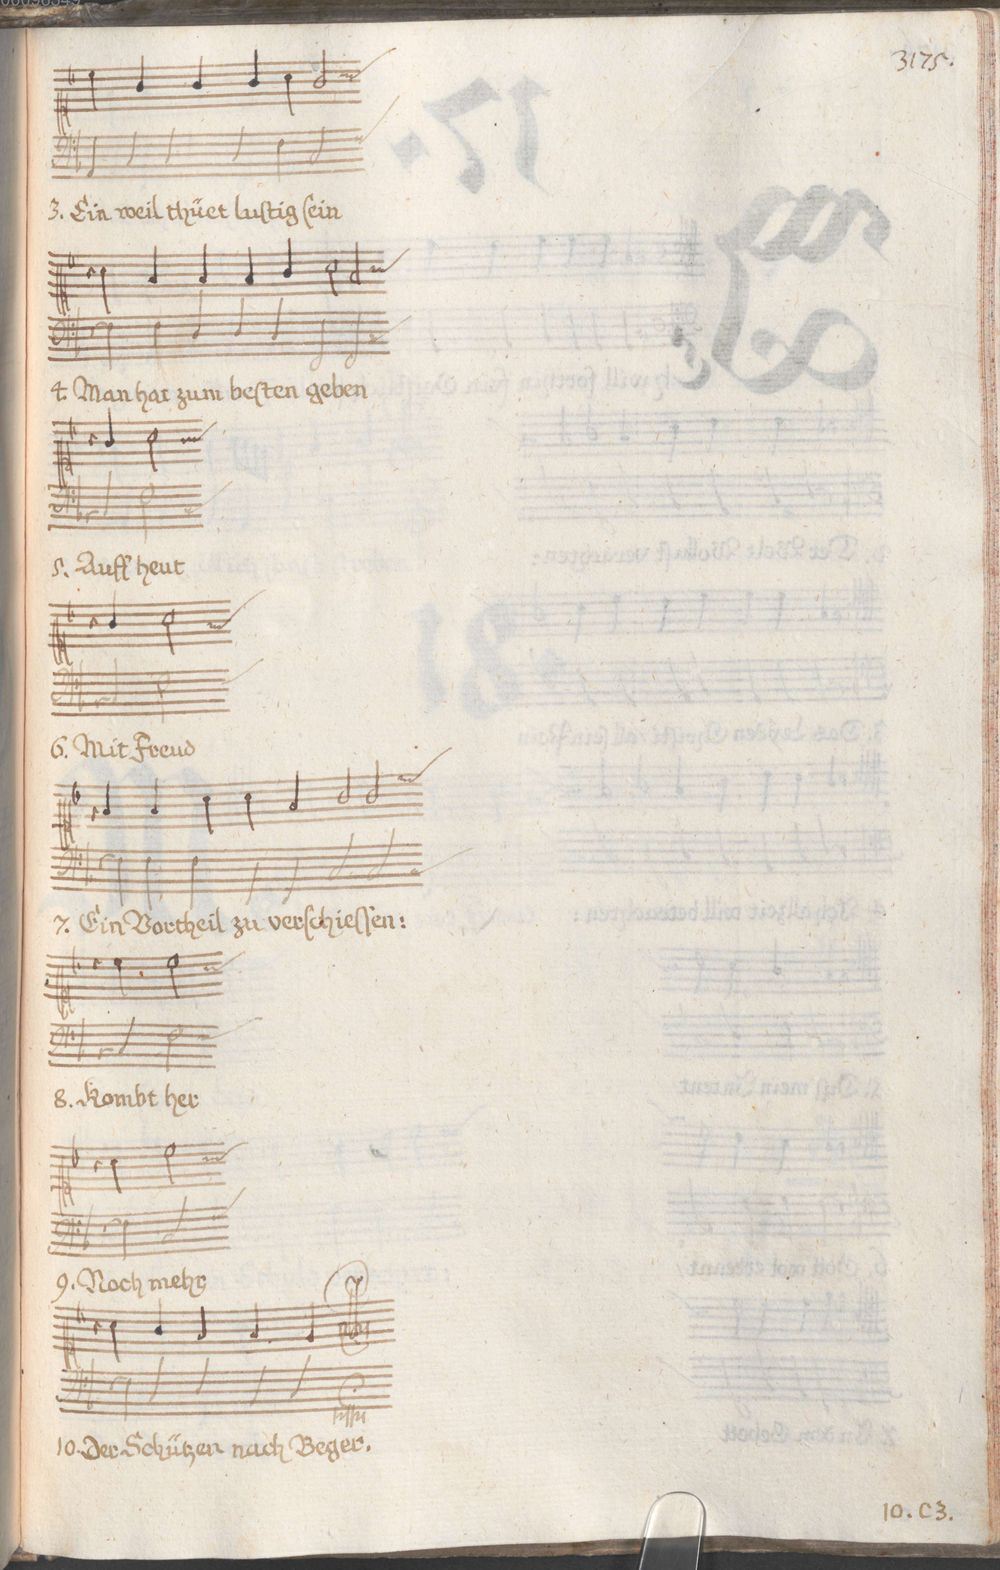 3175.
3. Ein weil thüet lustig sein
4. Man hat zum besten geben
5. Auff heut
6. Mit Freud
7. Ein Vortheil zu verschiessen:
8. Kombt her
9. Noch mehr
10. Der Schützen nach Beger.
10. C3.